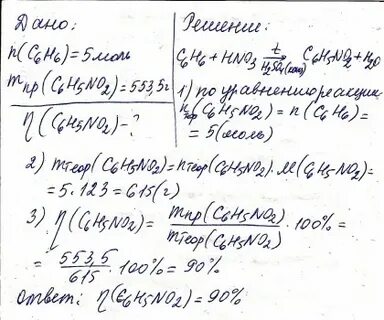 Дано:
n(C6H6)=5моль
mпр(C6H5NO2)=553,5г
η(C6H5NO2)-?
Решение:
C6H6+HNO3 t→ H2SO4(конц) C6H5NO2+H2O
1) по уравнению реакции
nпр(C6H5NO2)=n(C6H6)=
=5(моль)
2) mтеор(C6H5NO2)=nтеор(C6H5NO2)·M(C6H5NO2)=
=5·123=615(г)
3) η(C6H5NO2)= mпр(C6H5NO2)/mтеор(C6H5NO2) ·100%=
= 553,5/615 ·100%=90%
ответ: η(C6H5NO2)=90%